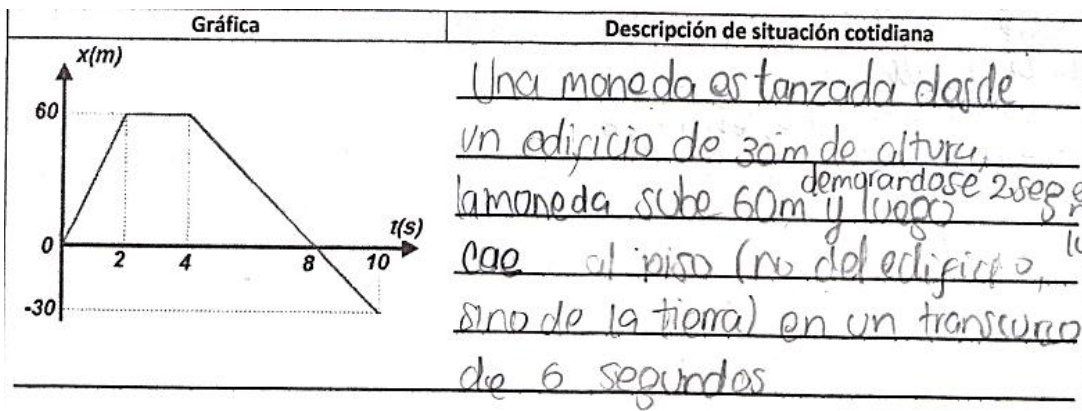 Gráfica
Descripción de situación cotidiana
x(m)
60
0
-30
2
4
8
10
t(s)
Una moneda es lanzada desde
un edificio de 30m de altura,
la moneda sube 60m demorandose 2 seg y luego
cae al piso (no del edificio,
sino de la tierra) en un transcurso
de 6 segundos